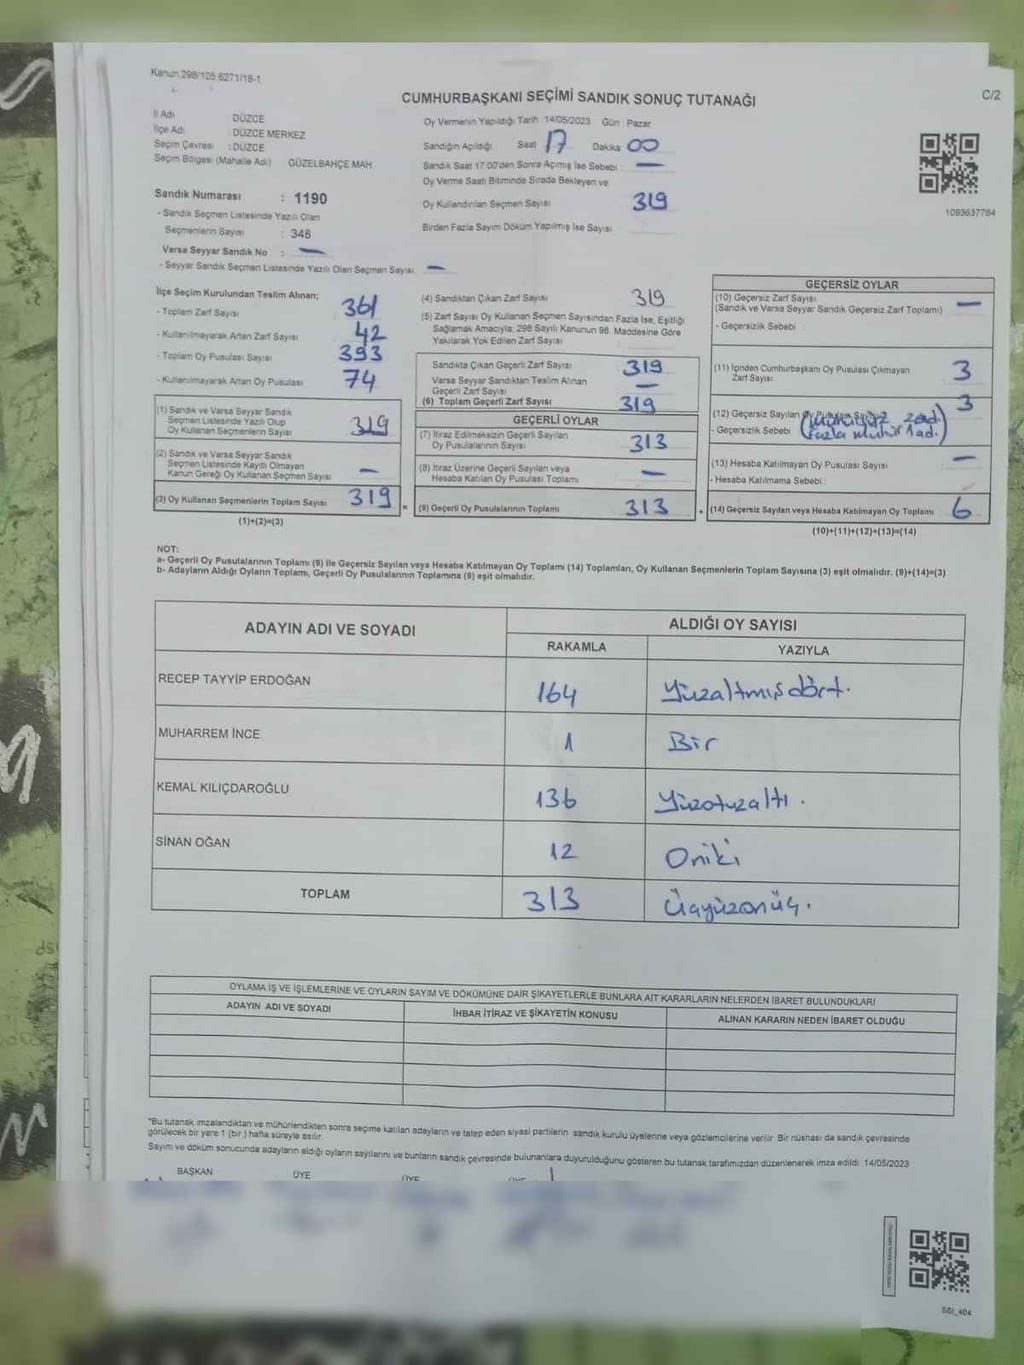 Kanun 298/105 6271/18-1
CUMHURBAŞKANI SEÇİMİ SANDIK SONUÇ TUTANAĞI
C/2
İl Adı DÜZCE
İlçe Adı DÜZCE MERKEZ
Seçim Çevresi : DÜZCE
Seçim Bölgesi (Mahalle Adı) GÜZELBAHÇE MAH
Oy Vermenin Yapıldığı Tarih : 14/05/2023 Gün : Pazar
Sandığın Açıldığı Saat 17 Dakika 00
Sandık Saat 17:00'den Sonra Açmış İse Sebebi —
Oy Verme Saati Bitiminde Sırada Bekleyen ve
Oy Kullandırılan Seçmen Sayısı 319
Birden Fazla Sayım Döküm Yapılmış İse Sayısı
1093637764
Sandık Numarası : 1190
- Sandık Seçmen Listesinde Yazılı Olan
Seçmenlerin Sayısı : 346
Varsa Seyyar Sandık No : —
- Seyyar Sandık Seçmen Listesinde Yazılı Olan Seçmen Sayısı: —
İlçe Seçim Kurulundan Teslim Alınan;
- Toplam Zarf Sayısı 361
- Kullanılmayarak Artan Zarf Sayısı 42
- Toplam Oy Pusulası Sayısı 393
- Kullanılmayarak Artan Oy Pusulası 74
(1) Sandık ve Varsa Seyyar Sandık
Seçmen Listesinde Yazılı Olup
Oy Kullanan Seçmenlerin Sayısı 319
(2) Sandık ve Varsa Seyyar Sandık
Seçmen Listesinde Kayıtlı Olmayan
Kanun Gereği Oy Kullanan Seçmen Sayısı —
(3) Oy Kullanan Seçmenlerin Toplam Sayısı 319
(1)+(2)=(3)
(4) Sandıktan Çıkan Zarf Sayısı 319
(5) Zarf Sayısı Oy Kullanan Seçmen Sayısından Fazla İse, Eşitliği
Sağlamak Amacıyla; 298 Sayılı Kanunun 98. Maddesine Göre
Yakılarak Yok Edilen Zarf Sayısı
Sandıkta Çıkan Geçerli Zarf Sayısı 319
Varsa Seyyar Sandıktan Teslim Alınan
Geçerli Zarf Sayısı —
(6) Toplam Geçerli Zarf Sayısı 319
GEÇERLİ OYLAR
(7) İtiraz Edilmeksizin Geçerli Sayılan
Oy Pusulalarının Sayısı 313
(8) İtiraz Üzerine Geçerli Sayılan veya
Hesaba Katılan Oy Pusulası Toplamı —
= (9) Geçerli Oy Pusulalarının Toplamı 313
GEÇERSİZ OYLAR
(10) Geçersiz Zarf Sayısı —
(Sandık ve Varsa Seyyar Sandık Geçersiz Zarf Toplamı)
- Geçersizlik Sebebi
(11) İçinden Cumhurbaşkanı Oy Pusulası Çıkmayan
Zarf Sayısı 3
(12) Geçersiz Sayılan Oy Pusulası Sayısı 3
- Geçersizlik Sebebi (Mühürsüz 2ad.
Fazla Mühür 1ad.)
(13) Hesaba Katılmayan Oy Pusulası Sayısı —
- Hesaba Katılmama Sebebi :
+ (14) Geçersiz Sayılan veya Hesaba Katılmayan Oy Toplamı 6
(10)+(11)+(12)+(13)=(14)
NOT:
a- Geçerli Oy Pusulalarının Toplamı (9) ile Geçersiz Sayılan veya Hesaba Katılmayan Oy Toplamı (14) Toplamları, Oy Kullanan Seçmenlerin Toplam Sayısına (3) eşit olmalıdır. (9)+(14)=(3)
b- Adayların Aldığı Oyların Toplamı, Geçerli Oy Pusulalarının Toplamına (9) eşit olmalıdır.
ADAYIN ADI VE SOYADI
ALDIĞI OY SAYISI
RAKAMLA YAZIYLA
RECEP TAYYİP ERDOĞAN 164 Yüzaltmışdört.
MUHARREM İNCE 1 Bir
KEMAL KILIÇDAROĞLU 136 Yüzotuzaltı.
SİNAN OĞAN 12 Oniki
TOPLAM 313 Üçyüzonüç.
OYLAMA İŞ VE İŞLEMLERİNE VE OYLARIN SAYIM VE DÖKÜMÜNE DAİR ŞİKAYETLERLE BUNLARA AİT KARARLARIN NELERDEN İBARET BULUNDUKLARI
ADAYIN ADI VE SOYADI İHBAR İTİRAZ VE ŞİKAYETİN KONUSU ALINAN KARARIN NEDEN İBARET OLDUĞU
*Bu tutanak imzalandıktan ve mühürlendikten sonra seçime katılan adayların ve talep eden siyasi partilerin sandık kurulu üyelerine veya gözlemcilerine verilir. Bir nüshası da sandık çevresinde
görülecek bir yere 1 (bir) hafta süreyle asılır.
Sayım ve döküm sonucunda adayların aldığı oyların sayılarını ve bunların sandık çevresinde bulunanlara duyurulduğunu gösteren bu tutanak tarafımızdan düzenlenerek imza edildi. 14/05/2023
BAŞKAN ÜYE ÜYE ÜYE
SGI_404